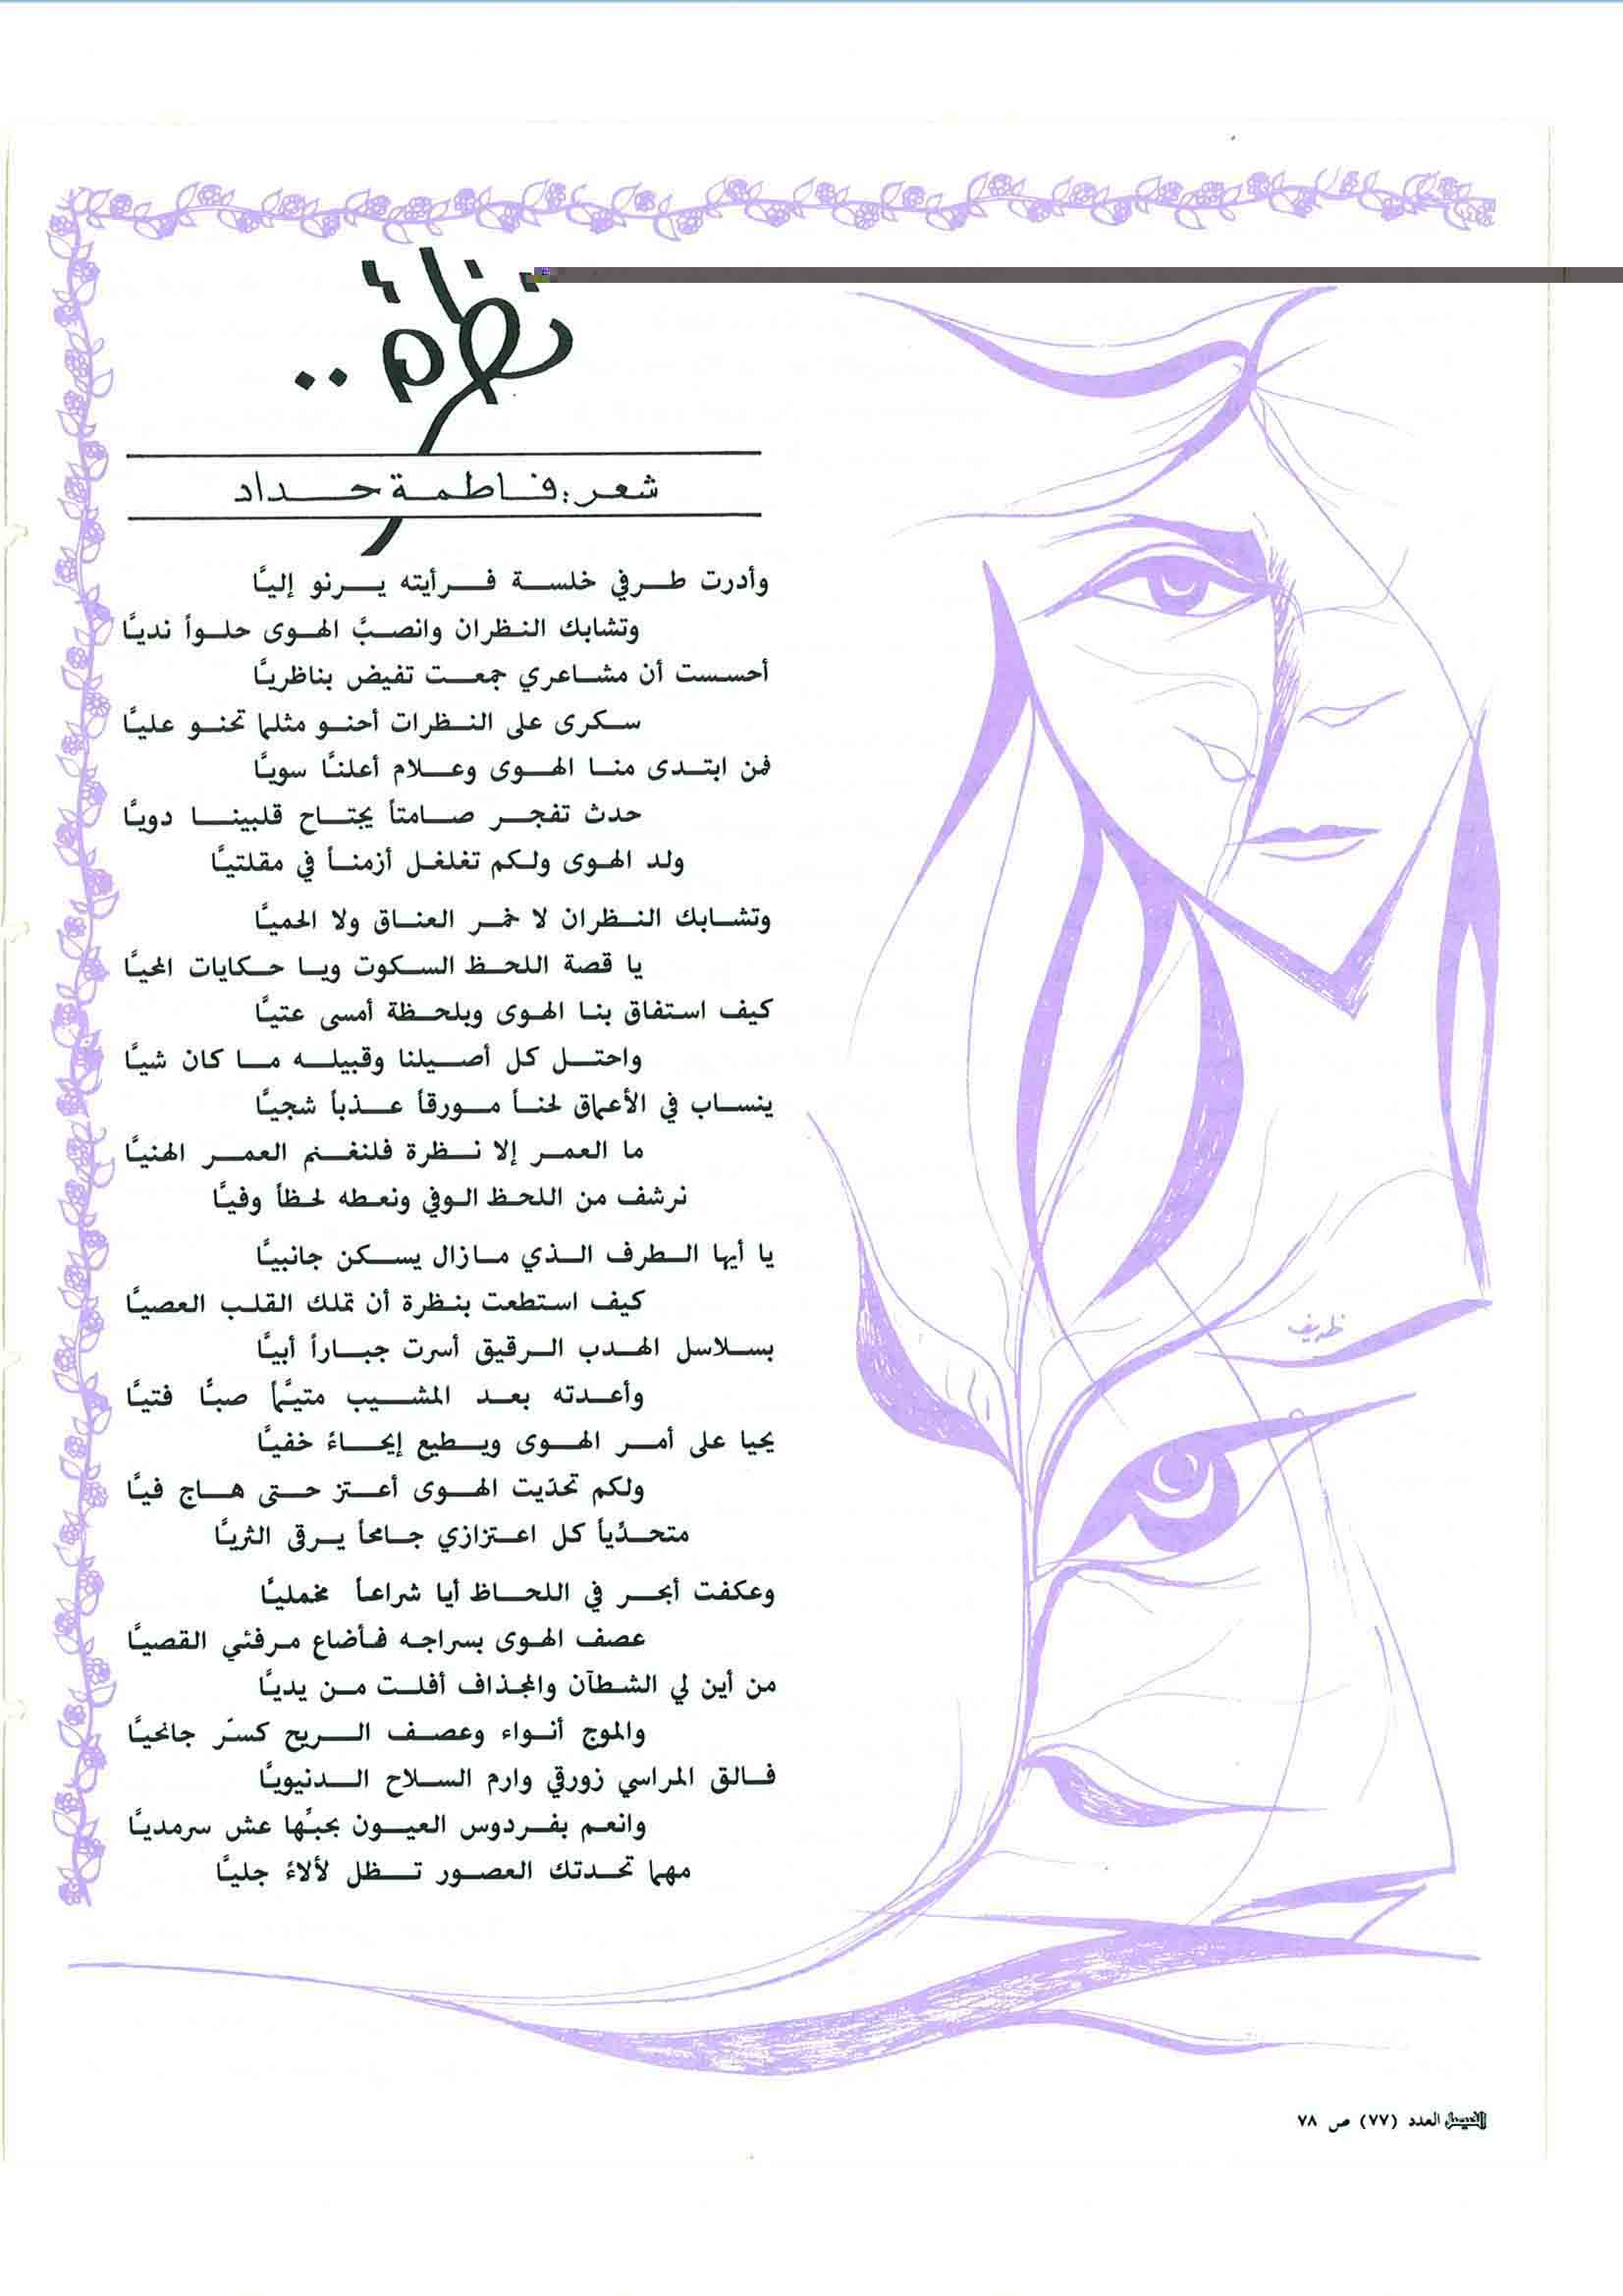 نظرة ..
شعر : فاطمة حداد
وأدرت طرفي خلسة فرأيته يرنو إليَّا
وتشابك النظران وانصبَّ الهوى حلواً نديَّا
أحسست أن مشاعري جمعت تفيض بناظريَّا
سكرى على النظرات أحنو مثلما تحنو عليَّا
فمن ابتدى منا الهوى وعلام أعلنَّا سويَّا
حدث تفجر صامتاً يجتاح قلبينا دويَّا
ولد الهوى ولكم تغلغل أزمناً في مقلتيَّا
وتشابك النظران لا خمر العناق ولا الحميَّا
يا قصة اللحظ السكوت ويا حكايات المحيَّا
كيف استفاق بنا الهوى وبلحظة أمسى عتيَّا
واحتل كل أصيلنا وقبيله ما كان شيَّا
ينساب في الأعماق لحناً مورقاً عذباً شجيَّا
ما العمر إلا نظرة فلنغنم العمر الهنيَّا
نرشف من اللحظ الوفي ونعطه لحظاً وفيَّا
يا أيها الطرف الذي مازال يسكن جانبيَّا
كيف استطعت بنظرة أن تملك القلب العصيَّا
بسلاسل الهدب الرقيق أسرت جباراً أبيَّا
وأعدته بعد المشيب متيَّماً صبًّا فتيَّا
يحيا على أمر الهوى ويطيع إيحاءً خفيَّا
ولكم تحدّيت الهوى أعتز حتى هاج فيَّا
متحدِّياً كل اعتزازي جامحاً يرقى الثريَّا
وعكفت أبحر في اللحاظ أيا شراعاً مخمليَّا
عصف الهوى بسراجه فأضاع مرفئي القصيَّا
من أين لي الشطآن والمجذاف أفلت من يديَّا
والموج أنواء وعصف الريح كسّر جانحيَّا
فالق المراسي زورقي وارم السلاح الدنيويَّا
وانعم بفردوس العيون بحبِّها عش سرمديَّا
مهما تحدتك العصور تظل لألاءً جليَّا
ظريف
الفيصل العدد (٧٧) ص ٧٨